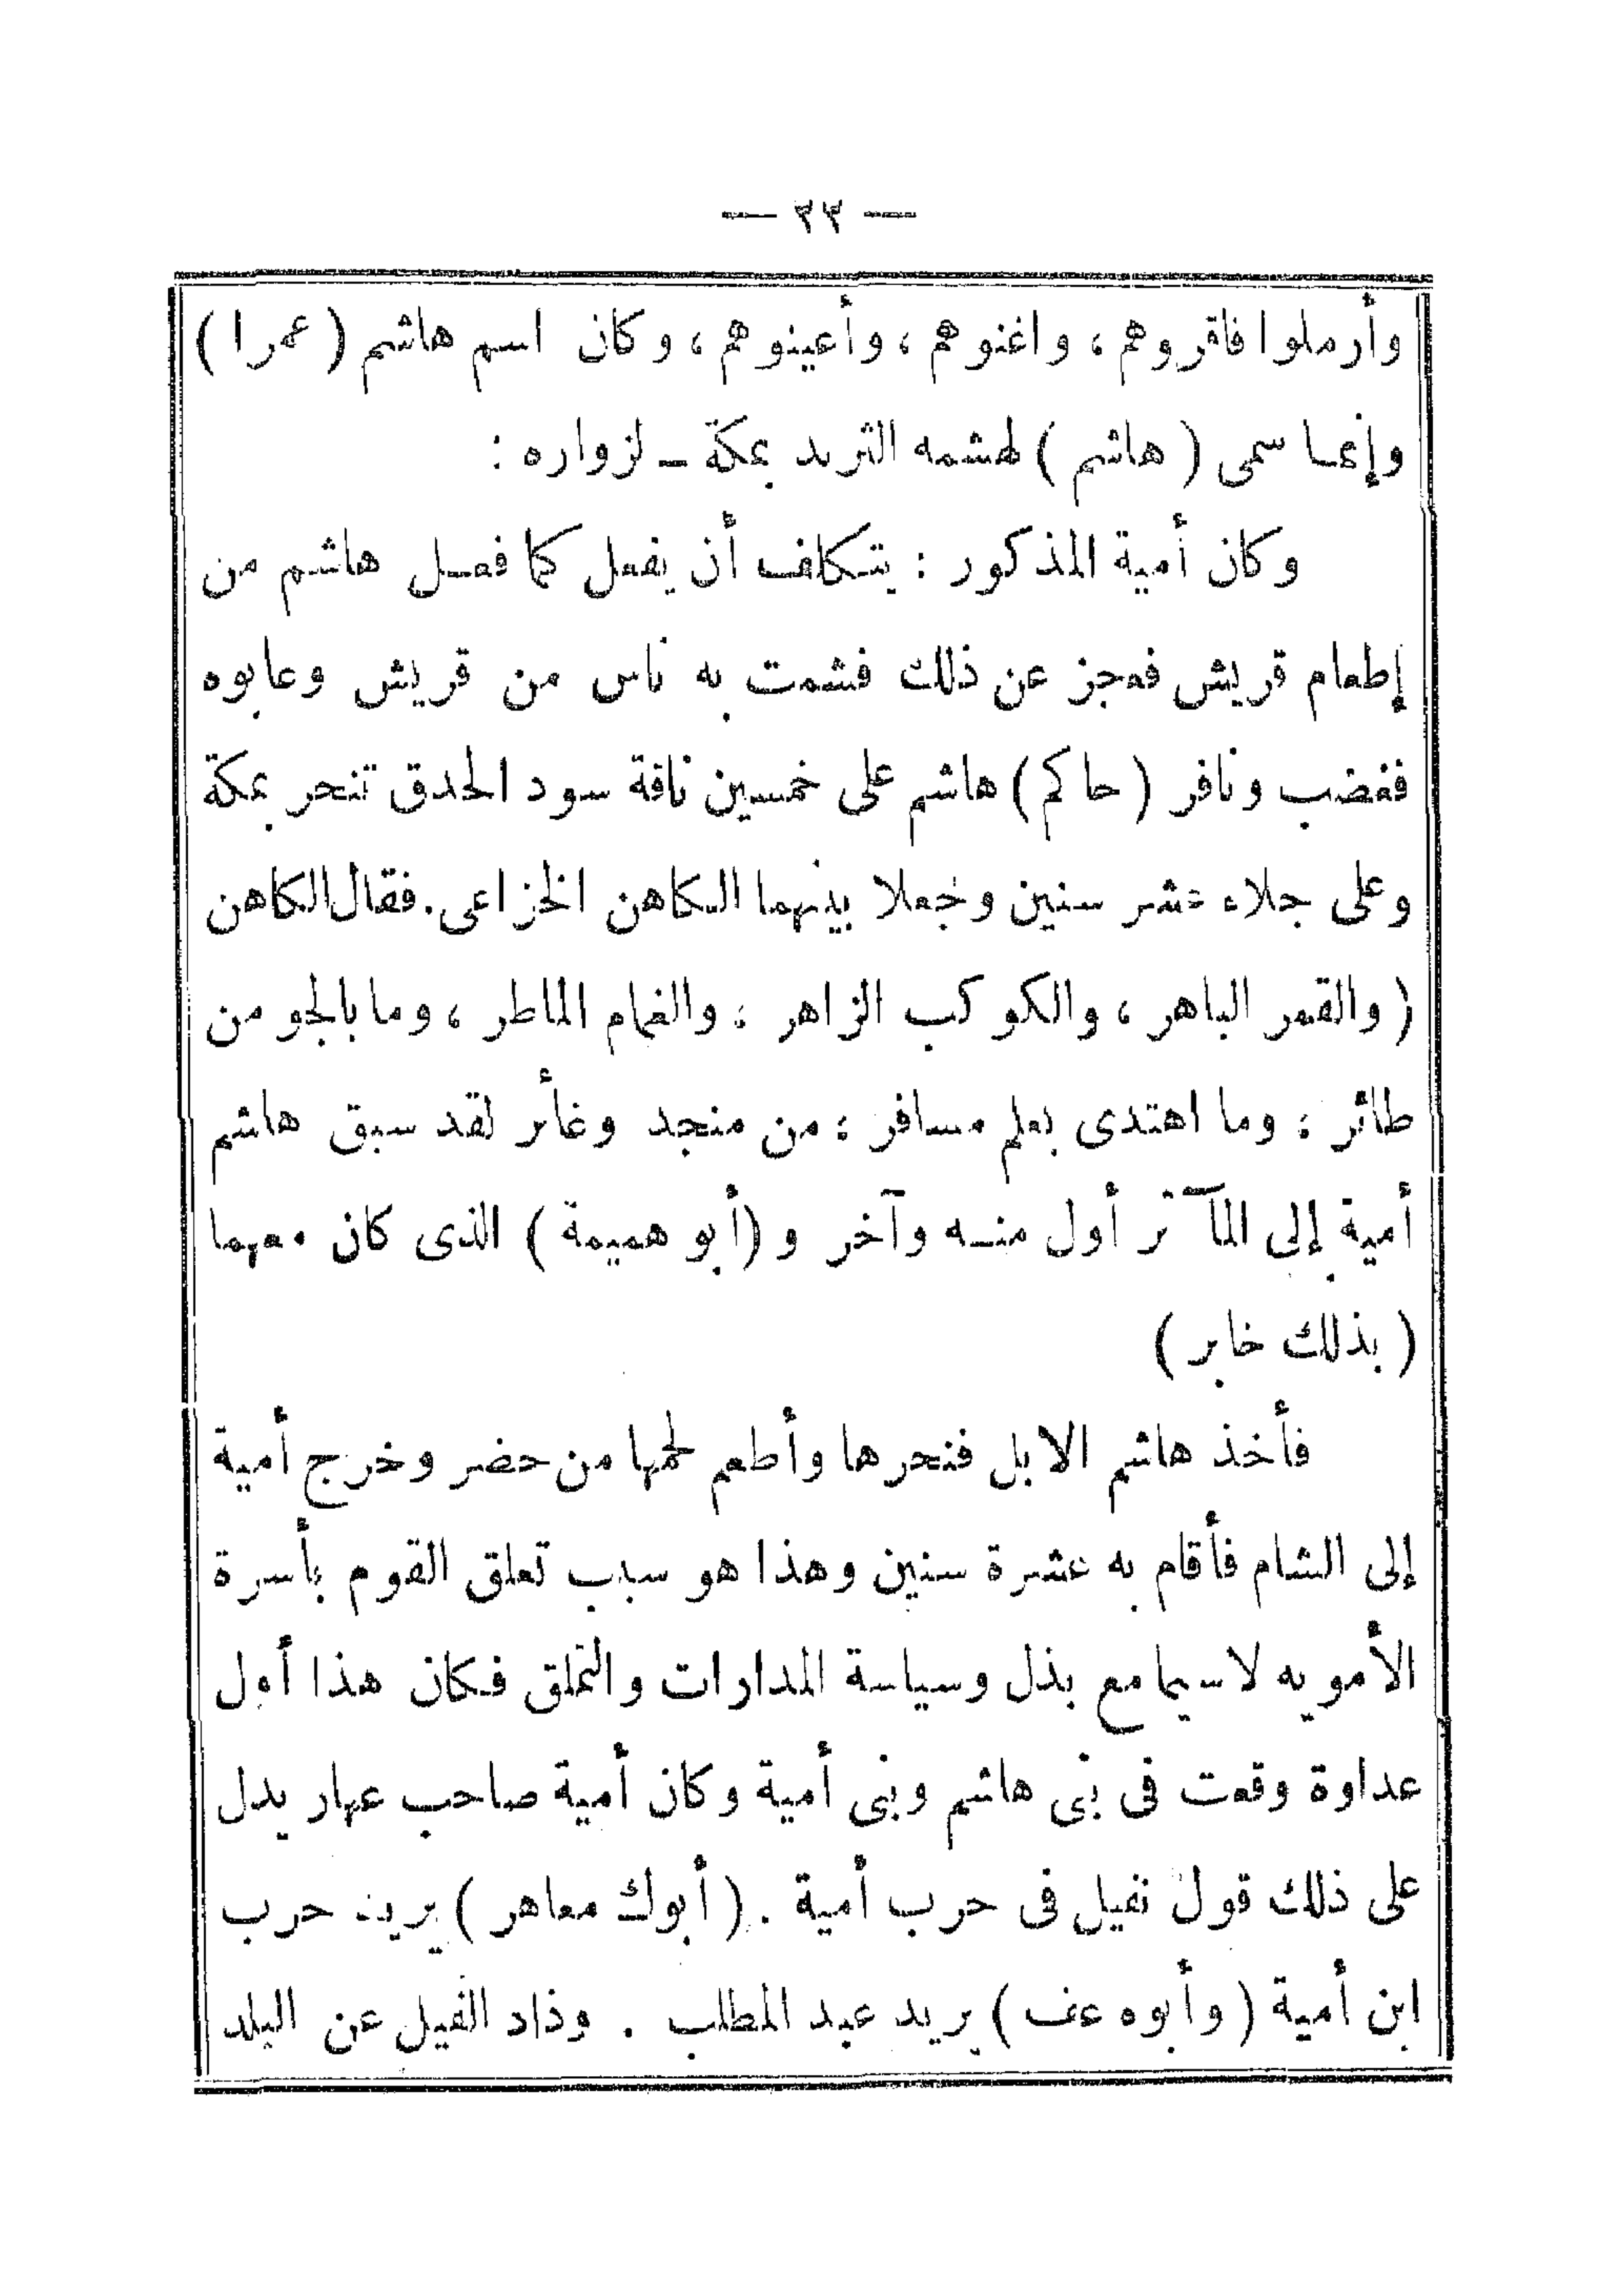 — ٢٣ —
وأرملوا فاقروهم ، واغنوهم ، وأعينوهم ، وكان اسم هاشم ( عمرا )
وإنما سمى ( هاشم ) لهشمه الثريد بمكة ــ لزواره :
وكان أمية المذكور : يتكلف أن يفعل كما فعل هاشم من
إطعام قريش فعجز عن ذلك فشمت به ناس من قريش وعابوه
فغضب ونافر ( حاكم ) هاشم على خمسين ناقة سود الحدق تنحر بمكة
وعلى جلاء عشر سنين وجعلا بينهما الكاهن الخزاعى . فقال الكاهن
( والقمر الباهر ، والكوكب الزاهر ؛ والغمام الماطر ، وما بالجو من
طائر ؛ وما اهتدى بعلم مسافر ؛ من منجد وغأر لقد سبق هاشم
أمية إلى المآثر أول منه وآخر و ( أبو هميمة ) الذى كان معهما
( بذلك خابر )
فأخذ هاشم الابل فنحرها وأطعم لحمها من حضر وخرج أمية
إلى الشام فأقام به عشرة سنين وهذا هو سبب تعلق القوم بأسرة
الأمويه لاسيما مع بذل وسياسة المدارات والتملق فكان هذا أول
عداوة وقعت فى بنى هاشم وبنى أمية وكان أمية صاحب عهار يدل
على ذلك قول نفيل فى حرب أمية . ( أبوك معاهر ) يريد حرب
ابن أمية ( وأبوه عف ) يريد عبد المطلب . وذاد الفيل عن البلد